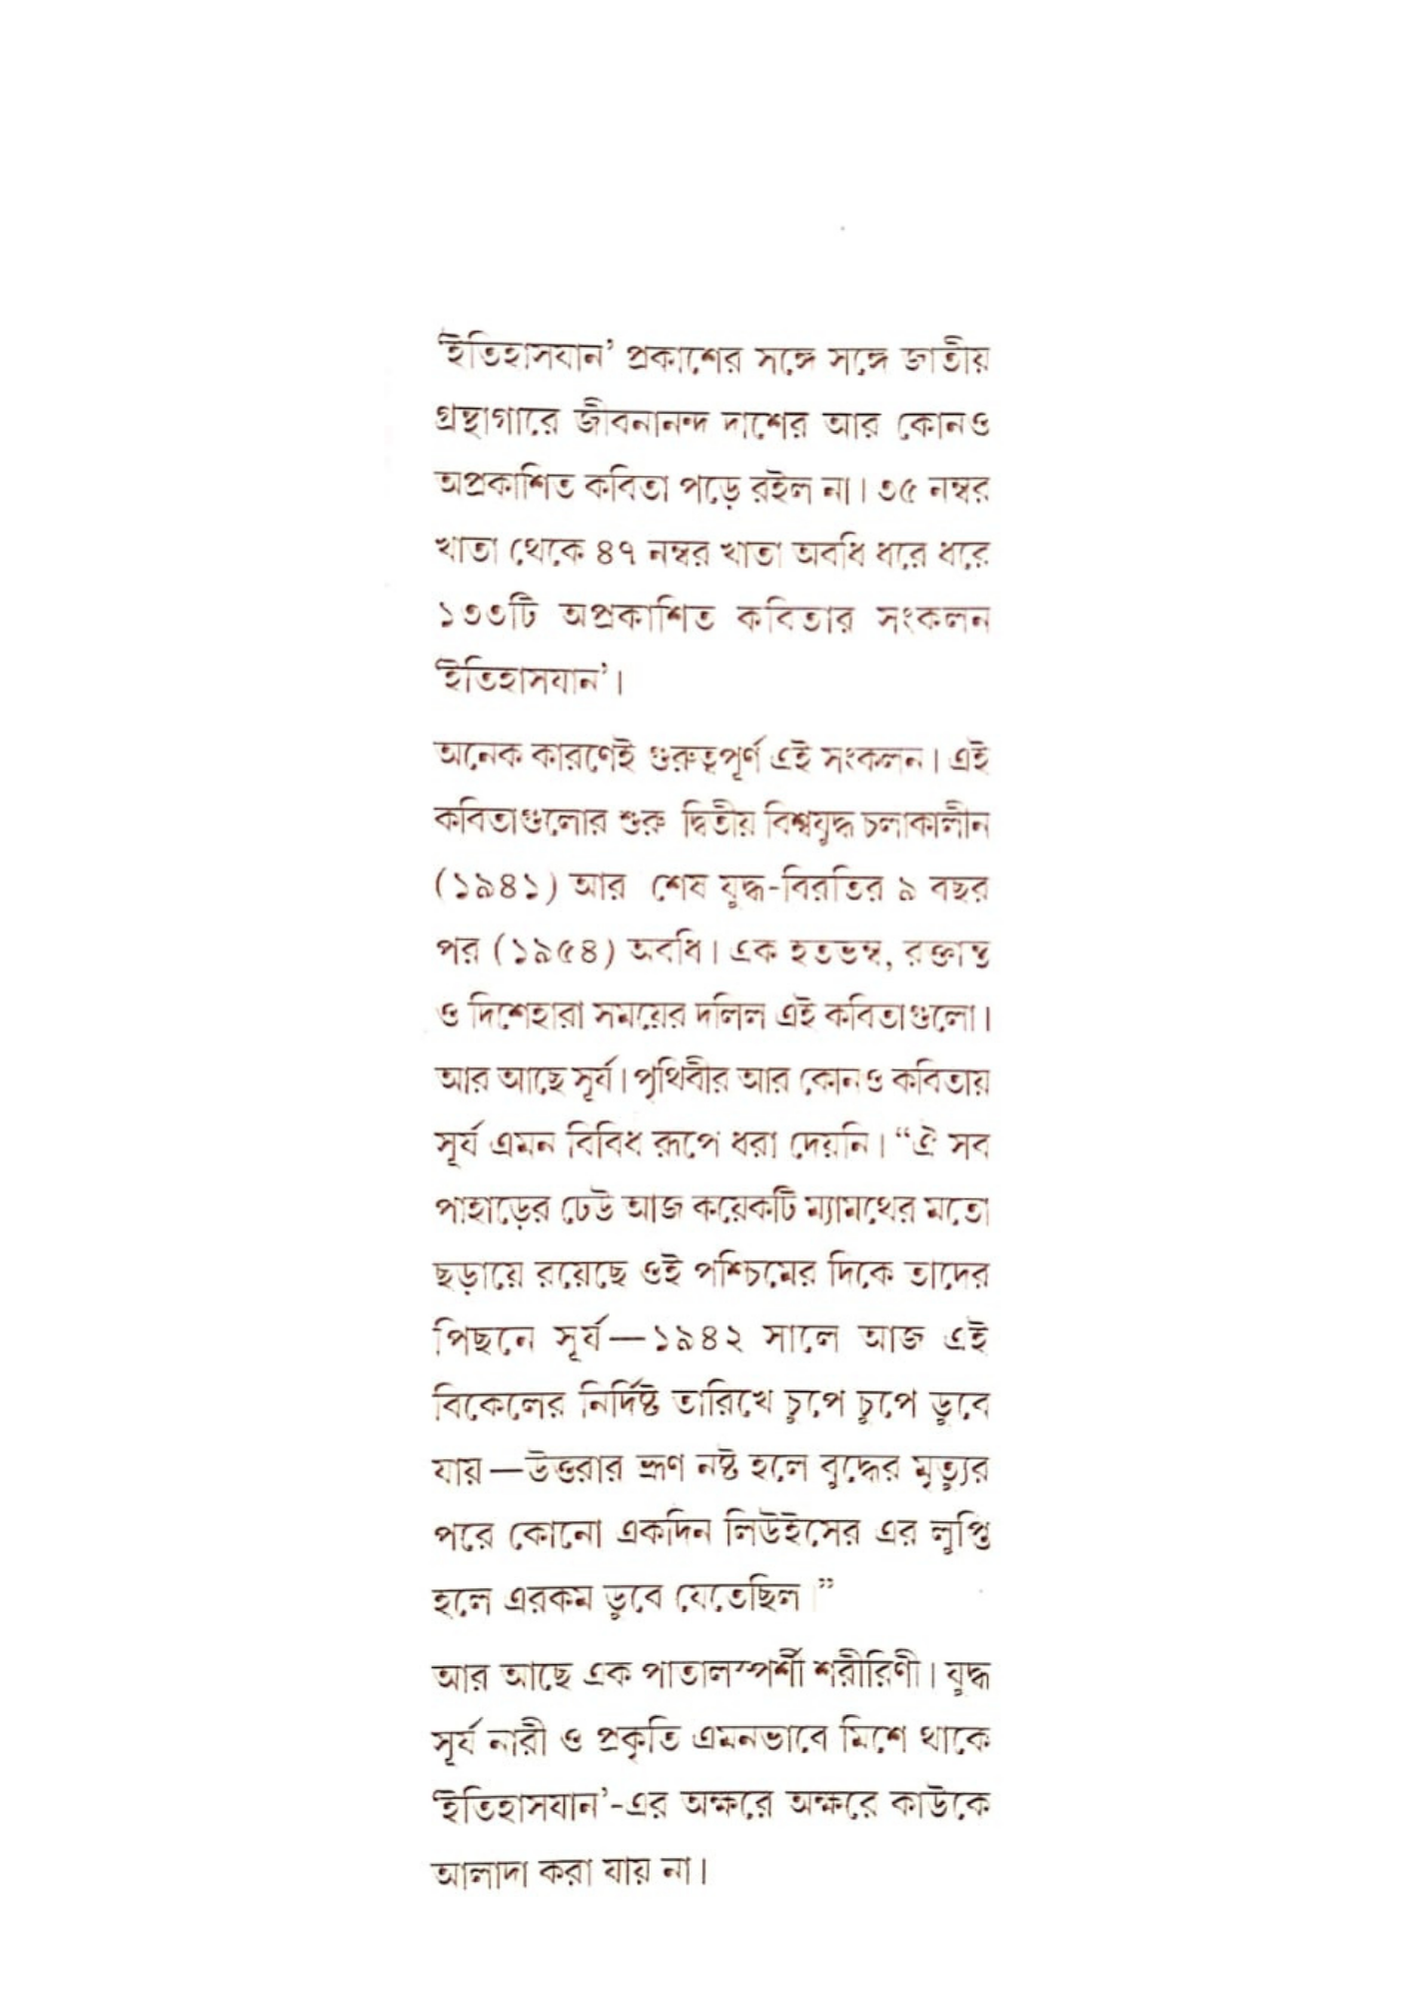 ‘ইতিহাসযান’ প্রকাশের সঙ্গে সঙ্গে জাতীয়
গ্রন্থাগারে জীবনানন্দ দাশের আর কোনও
অপ্রকাশিত কবিতা পড়ে রইল না। ৩৫ নম্বর
খাতা থেকে ৪৭ নম্বর খাতা অবধি ধরে ধরে
১৩৩টি অপ্রকাশিত কবিতার সংকলন
‘ইতিহাসযান’।
অনেক কারণেই গুরুত্বপূর্ণ এই সংকলন। এই
কবিতাগুলোর শুরু দ্বিতীয় বিশ্বযুদ্ধ চলাকালীন
(১৯৪১) আর শেষ যুদ্ধ-বিরতির ৯ বছর
পর (১৯৫৪) অবধি। এক হতভম্ব, রক্তাক্ত
ও দিশেহারা সময়ের দলিল এই কবিতাগুলো।
আর আছে সূর্য। পৃথিবীর আর কোনও কবিতায়
সূর্য এমন বিবিধ রূপে ধরা দেয়নি। “ঐ সব
পাহাড়ের ঢেউ আজ কয়েকটি ম্যামথের মতো
ছড়ায়ে রয়েছে ওই পশ্চিমের দিকে তাদের
পিছনে সূর্য—১৯৪২ সালে আজ এই
বিকেলের নির্দিষ্ট তারিখে চুপে চুপে ডুবে
যায়—উত্তরার ভ্রূণ নষ্ট হলে বুদ্ধের মৃত্যুর
পরে কোনো একদিন লিউইসের এর লুপ্তি
হলে এরকম ডুবে যেতেছিল।”
আর আছে এক পাতালস্পর্শী শরীরিণী। যুদ্ধ
সূর্য নারী ও প্রকৃতি এমনভাবে মিশে থাকে
‘ইতিহাসযান’-এর অক্ষরে অক্ষরে কাউকে
আলাদা করা যায় না।